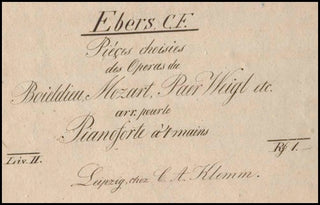 Ebers, C.F.
Piéçes choisies
des Operas du
Boieldieu, Mozart, Paer Weigl etc.
arr. pour le
Pianoforte à 4 mains
Liv. II.
Rf 1.
Leipzig, chez C. A. Klemm.